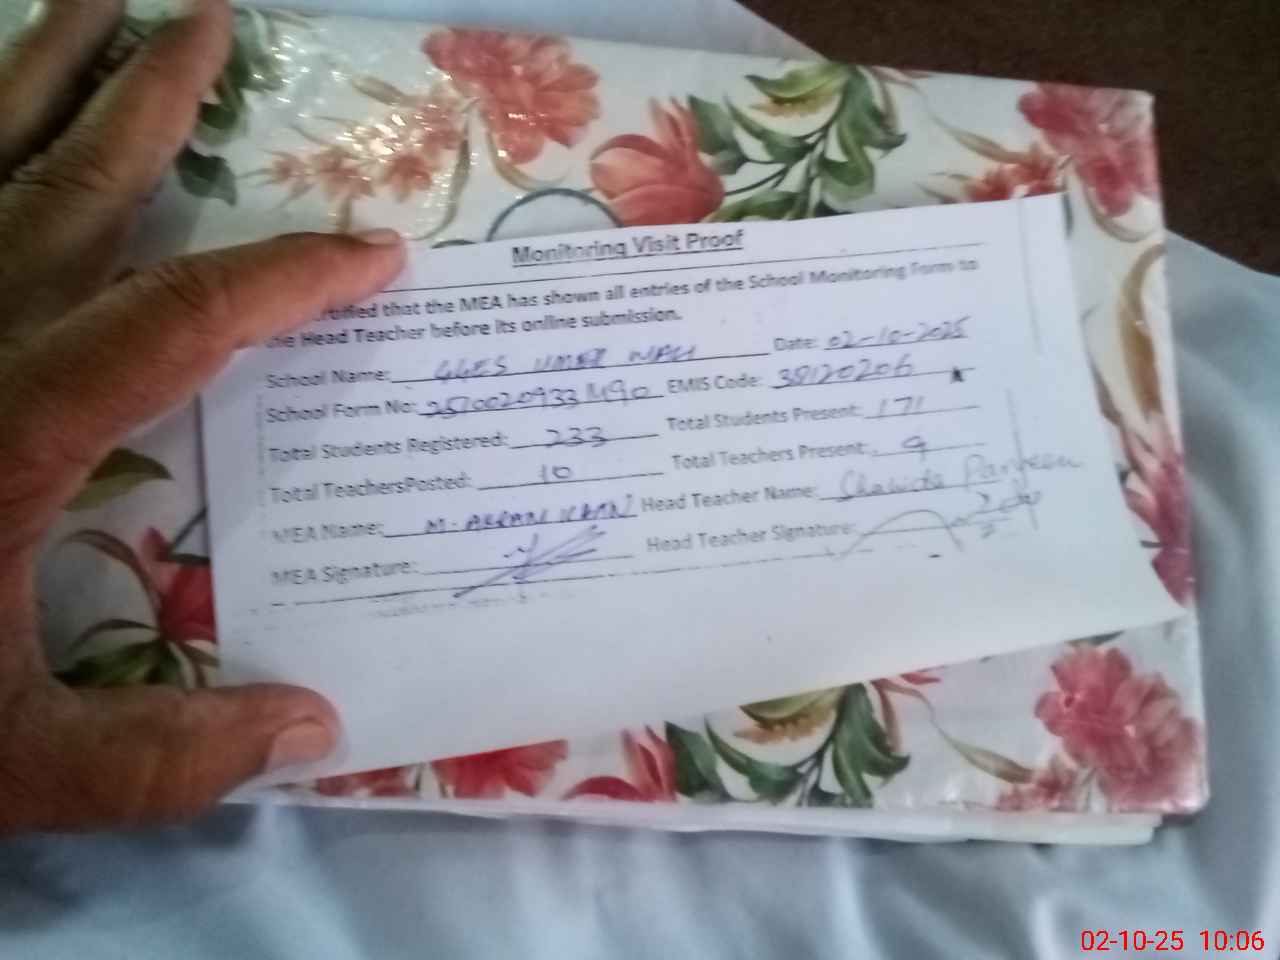 Monitoring Visit Proof
certified that the MEA has shown all entries of the School Monitoring Form to
the Head Teacher before its online submission.
School Name: GGES UMER WALI Date: 02-10-2025
School Form No: EMIS Code: 38120206
Total Students Registered: 233 Total Students Present: 171
Total TeachersPosted: 10 Total Teachers Present: 9
MEA Name: M. AKRAM KHAN Head Teacher Name: Parveen
MEA Signature: Head Teacher Signature:
02-10-25 10:06